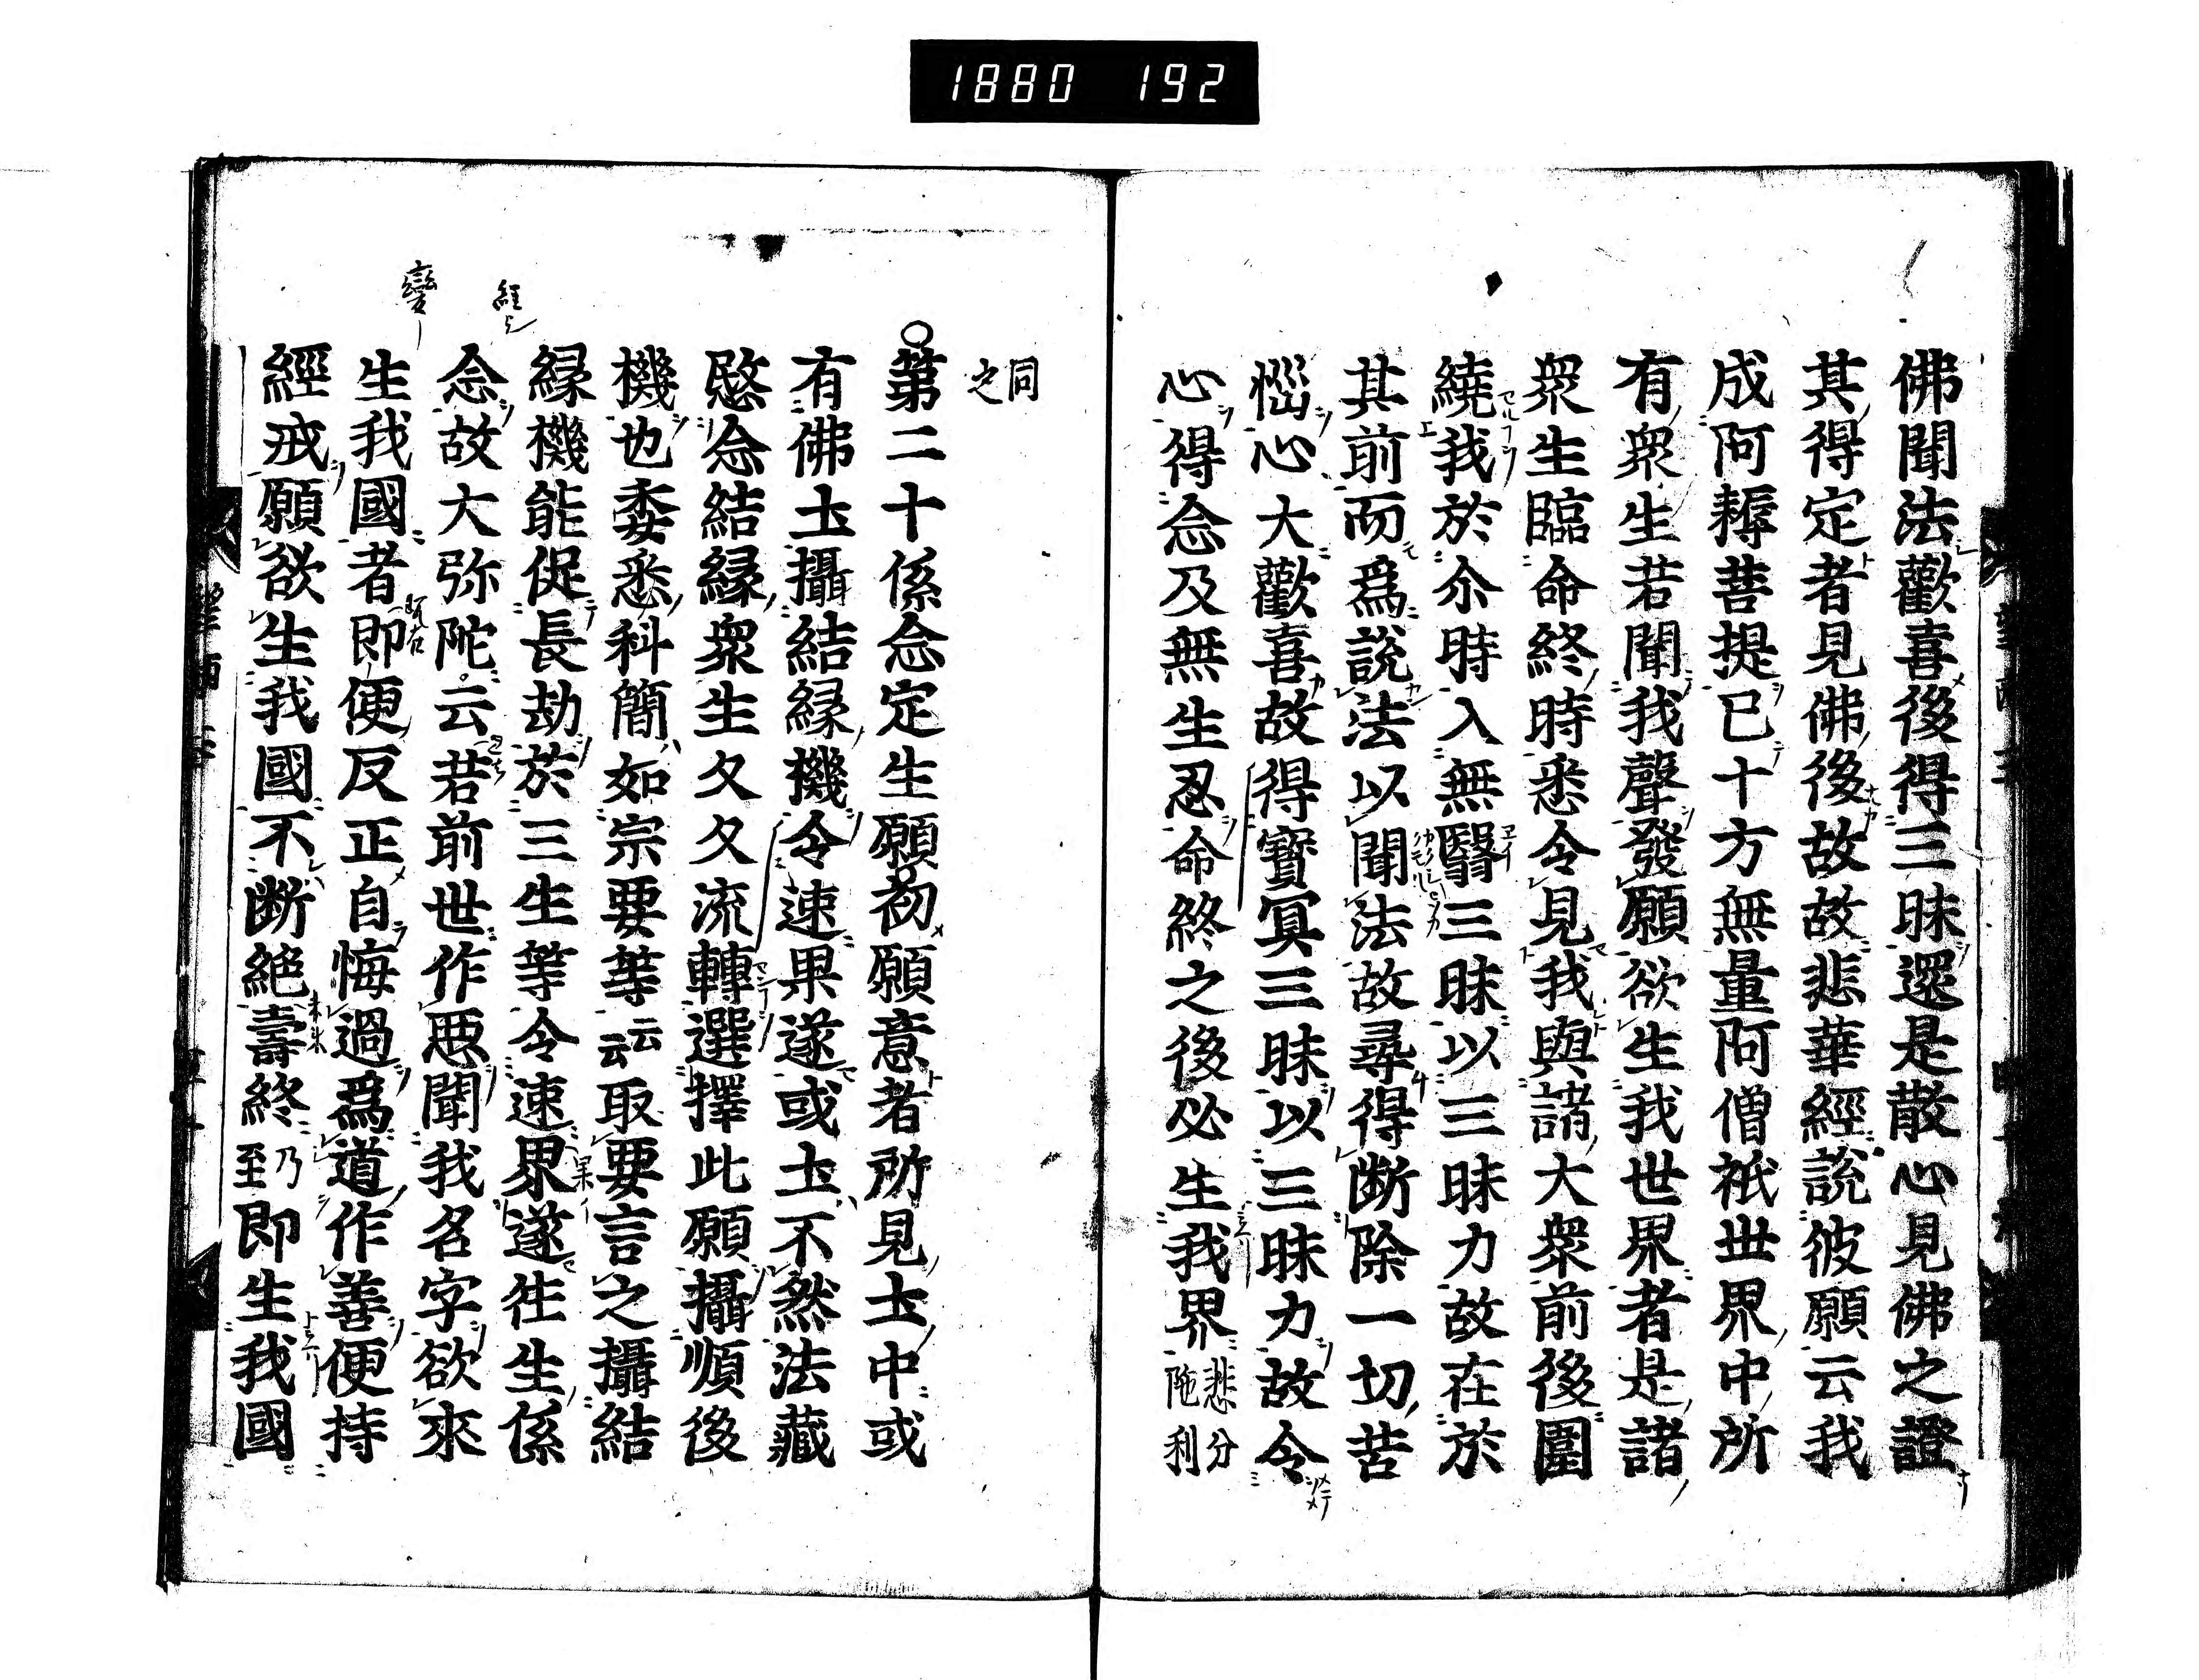 1880 192
佛聞法歡喜後得三昧還是散心見佛之證
其得定者見佛後故故悲華經説彼願云我
成阿耨菩提已十方無量阿僧祇世界中所
有衆生若聞我聲發願欲生我世界者是諸
衆生臨命終時悉令見我與諸大衆前後圍
繞我於尒時入無翳三昧以三昧力故在於
其前而爲説法以聞法故尋得断除一切苦
惱心大歡喜故得寳冥三昧以三昧力故令
心得念及無生忍命終之後必生我界悲分
陁利
同
之
○第二十係念定生願初願意者所見土中或
有佛土攝結縁機令速果遂或土不然法藏
愍念結縁衆生久久流轉選擇此願攝順後
機也委悉科簡如宗要等云云取要言之攝結
縁機能促長劫於三生等令速界遂徃生係
念故大弥陀云若前世作悪聞我名字欲來
生我國者即便反正自悔過爲道作善便持
經戒願欲生我國不断絶壽終乃至即生我國